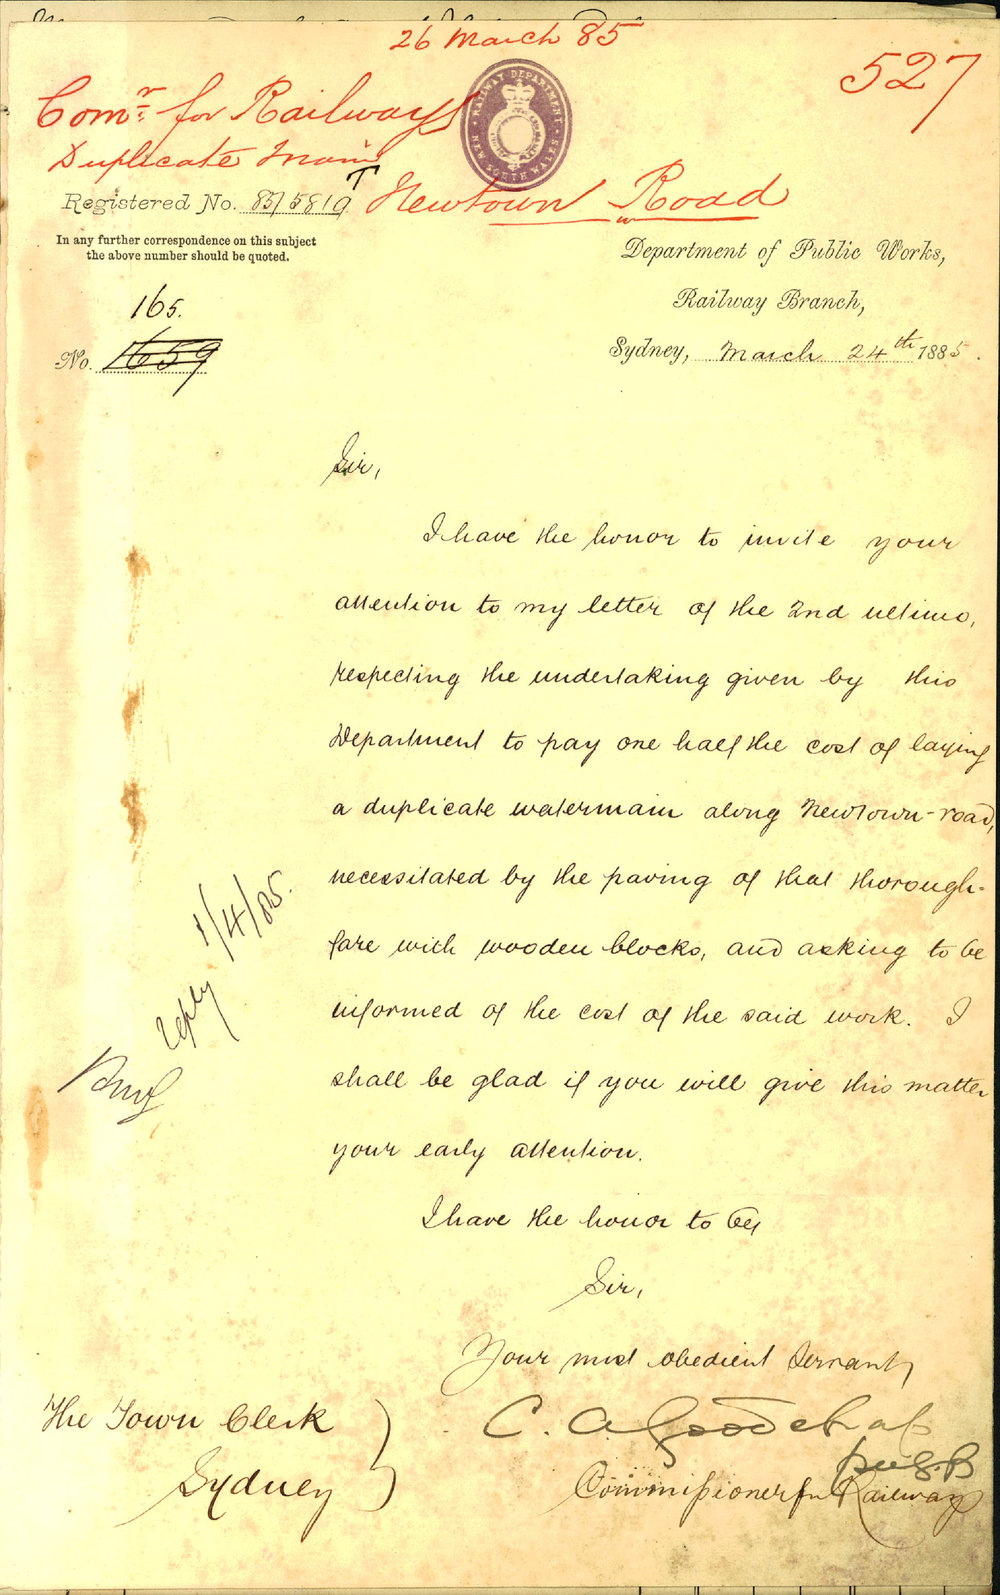 26 March 85
527
Comr. for Railways
Duplicate Main
RAILWAY DEPARTMENT
NEW SOUTH WALES
Registered No. 85/5819 T
Newtown Road
In any further correspondence on this subject
the above number should be quoted.
Department of Public Works,
Railway Branch,
165.
No. 1659
Sydney, March 24th 1885.
Sir,
I have the honor to invite your
attention to my letter of the 2nd ultimo,
respecting the undertaking given by this
Department to pay one half the cost of laying
a duplicate watermain along Newtown-road,
necessitated by the paving of that thorough-
fare with wooden blocks, and asking to be
informed of the cost of the said work. I
shall be glad if you will give this matter
your early attention.
reply 1/4/85.
I have the honor to be
Sir,
Your most obedient Servant,
The Town Clerk
Sydney
C. A. Goodchap
Commissioner for Railways